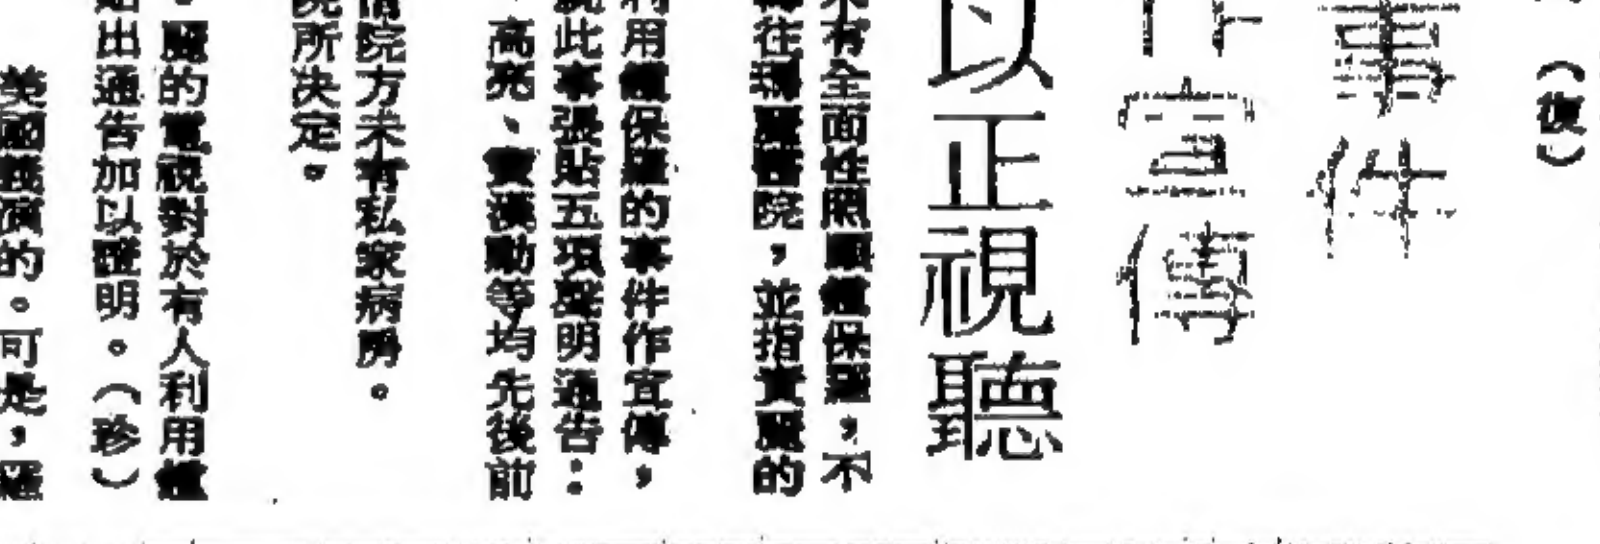 （復）
事件
宣傳
以正視聽
有全面性照顧鍾保羅，不
往瑪麗醫院，並指責麗的
利用鍾保羅的事件作宣傳，
此事張貼五項聲明通告：
、高亮、賈漢勳等均先後前
院方未有私家病房。
院所決定。
。麗的電視對於有人利用鍾
出通告加以明。（珍）
演的。可是，羅